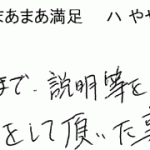 まあまあ満足　ハ　やや
まで、説明等を
をして頂いた事